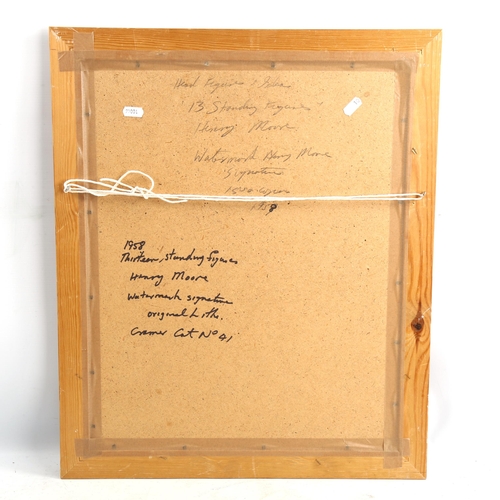 13 Standing Figures
Henry Moore
Watermark Henry Moore
Signature
1958
1958
Thirteen, standing figures
Henry Moore
Watermark signature
original Litho.
Cramer Cat Nº 41